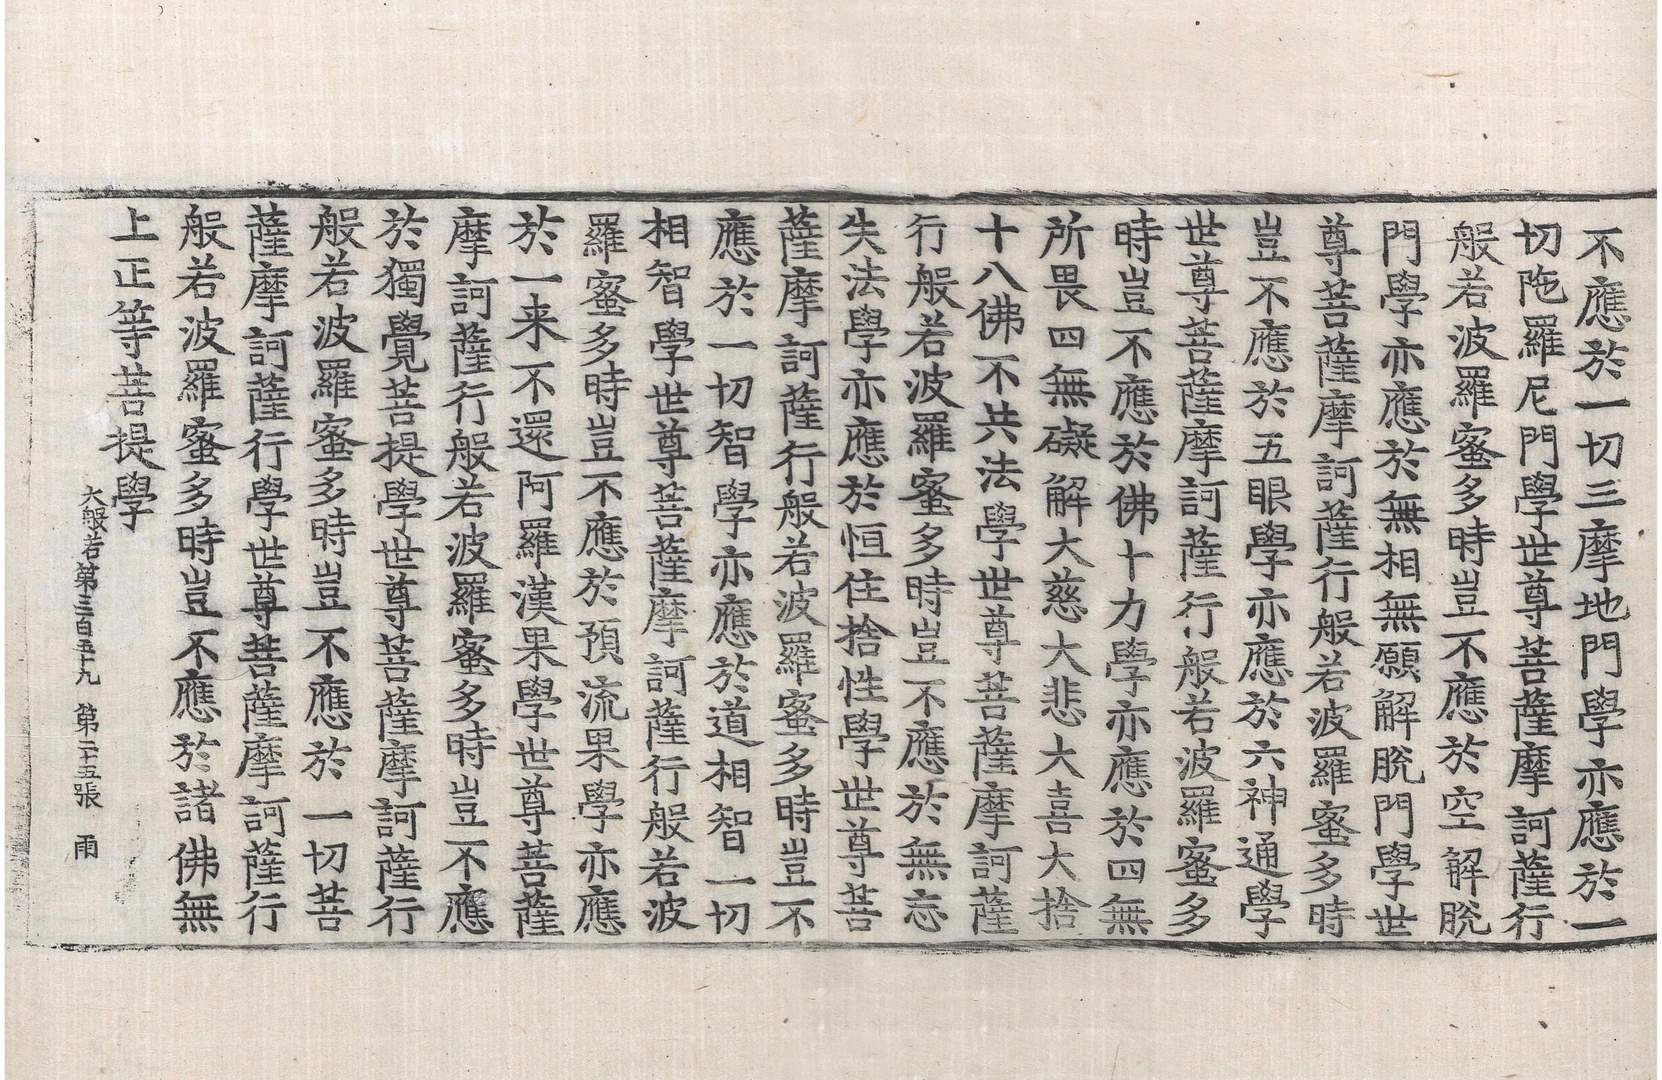 不應於一切三摩地門學亦應於一
切陁羅尼門學世尊菩薩摩訶薩行
般若波羅蜜多時豈不應於空解脫
門學亦應於無相無願解脫門學世
尊菩薩摩訶薩行般若波羅蜜多時
豈不應於五眼學亦應於六神通學
世尊菩薩摩訶薩行般若波羅蜜多
時豈不應於佛十力學亦應於四無
所畏四無礙解大慈大悲大喜大捨
十八佛不共法學世尊菩薩摩訶薩
行般若波羅蜜多時豈不應於無忘
失法學亦應於恒住捨性學世尊菩
薩摩訶薩行般若波羅蜜多時豈不
應於一切智學亦應於道相智一切
相智學世尊菩薩摩訶薩行般若波
羅蜜多時豈不應於預流果學亦應
於一来不還阿羅漢果學世尊菩薩
摩訶薩行般若波羅蜜多時豈不應
於獨覺菩提學世尊菩薩摩訶薩行
般若波羅蜜多時豈不應於一切菩
薩摩訶薩行學世尊菩薩摩訶薩行
般若波羅蜜多時豈不應於諸佛無
上正等菩提學
大般若第三百五十九 第二十五張 雨